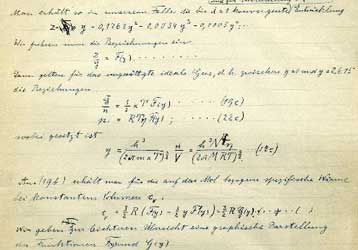 Man erhält so in unserem Falle die bis λ=1 konvergente Entwicklung
z = y - 0,1768 y² - 0,0034 y³ - 0,0005 y⁴...
Wir führen nun die Bezeichnungen ein
z/y = F(y) . . . . . . .
Dann gelten für das ungesättigte ideale Gas, d. h. zwischen y=0 und y=2,615
die Beziehungen
Ē/n = 3/2 κT F(y) . . . . . (19c)
p = RTη F(y) ; . . . . . (22c)
wobei gesetzt ist
y = h³/(2πmκT)^3/2 n/V = h³N^4 η/(2πMRT)^3/2 (18c)
Aus (19c) erhält man für die auf das Mol bezogene spezifische Wärme
bei konstantem Volumen c_v:
c_v = 3/2 R (F(y) - 3/2 y F'(y)) = 3/2 R G(y) . . . (
Wir geben zur leichteren Übersicht eine graphische Darstellung
der Funktionen F(y) und G(y)